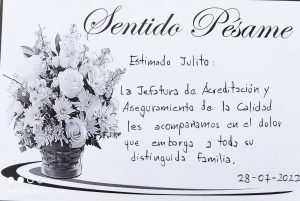 Sentido Pésame
Estimado Julito:
La Jefatura de Acreditación y
Aseguramiento de la Calidad
les acompañamos en el dolor
que embarga a toda su
distinguida familia.
28-07-2022